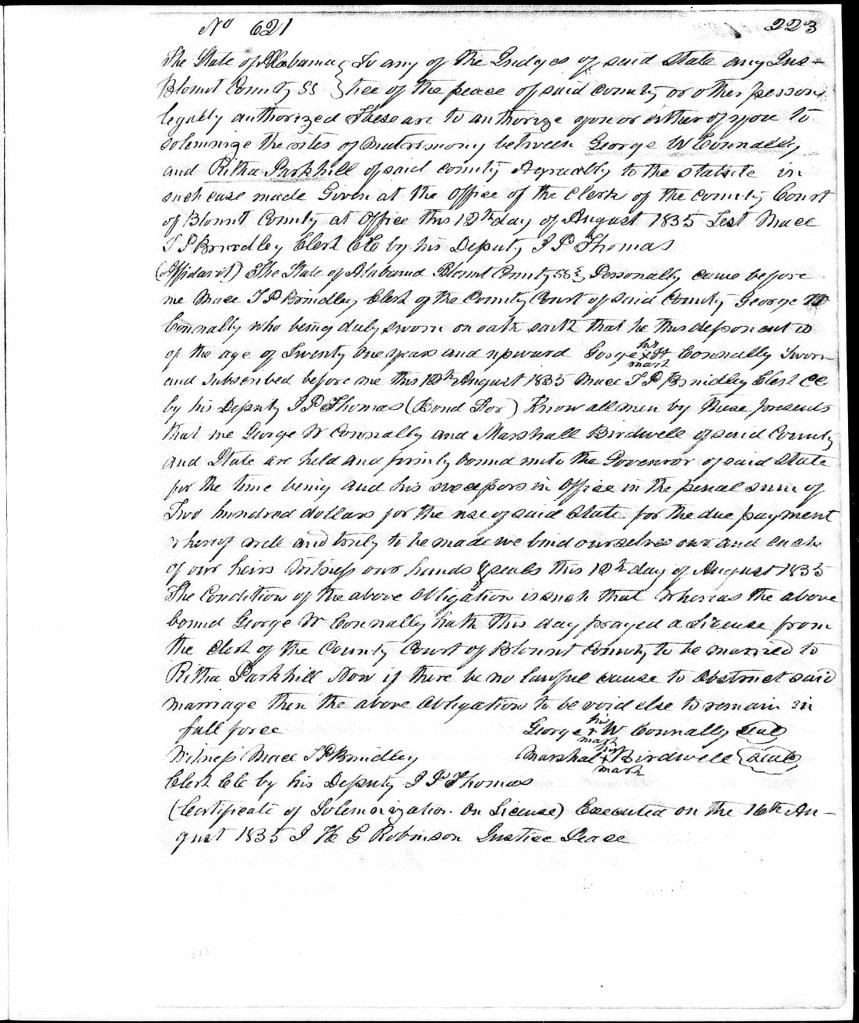 No 621 223
The State of Alabama } To any of the Judges of said State any Jus-
Blount County SS } tice of the peace of said county or other person
legally authorized These are to authorize you or either of you to
solemnize the rites of matrimony between George W Connally
and Ritha Parkhill of said county Agreeably to the statute in
such case made Given at the Office of the Clerk of the County Court
of Blount County at Office this 12th day of August 1835 Test Mace
T P Brindley Clerk CC by his Deputy J P Thomas
(Affidavit) The State of Alabama Blount County SS Personally came before
me Mace T P Brindley Clerk of the County Court of said County George W
Connally who being duly sworn on oath saith that he this deponent is
of the age of Twenty One years and upward Gorge his x mark W Connally Sworn
and Subscribed before me this 12th August 1835 Mace T P Brindley Clerk CC
by his Deputy J P Thomas (Bond For) Know all men by these presents
that we George W Connally and Marshall Birdwell of said County
and State are held and firmly bound unto the Govenror of said State
for the time being and his successors in Office in the penal sum of
Two hundred dollars for the use of said State for the due payment
whereof well and truly to be made we bind ourselves our and each
of our heirs Witness our hands & seals this 12th day of August 1835
The Condition of the above Obligation is such that Whereas the above
bound George W Connally hath this day prayed a License from
the Clerk of the County Court of Blount County to be married to
Ritha Parkhill Now if there be no lawful cause to obstruct said
marriage then the above Obligation to be void else to remain in
full force George his x mark W Connally seal
Witness Mace T P Brindley Marshal his x mark Birdwell seal
Clerk CC by his Deputy J P Thomas
(Certificate of Solemnization on License) Executed on the 16th Au-
gust 1835 J H G Robinson Justice Peace